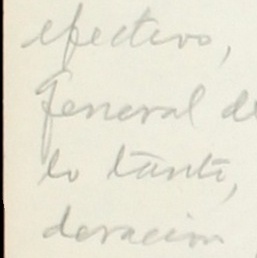 efectivo,
General de
lo tanto,
deracion